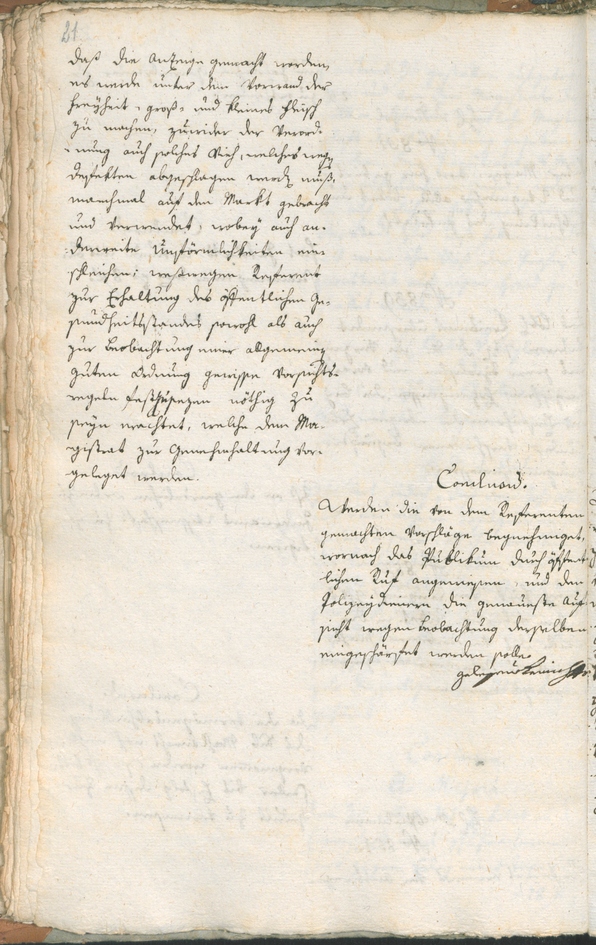 21.
daß die Anzeige gemacht worden,
es werde unter dem Vorwand der
Freyheit, groß- und kleines Fleisch
zu machen, zuwider der Verord-
nung auch solches Vieh, welches wegen
Defekten abgeschlagen werden muß,
manchmal auf den Markt gebracht
und verwendet, wobey auch an-
derweite Unförmlichkeiten ein-
schleichen; weßwegen Referent
zur Erhaltung des öffentlichen Ge-
sundheitsstandes sowohl als auch
zur Beobachtung einer allgemeinen
guten Ordnung gewisse Vorsichts-
regeln festzusezen nöthig zu
seyn erachtet, welche dem Ma-
gistrat zur Genehmhaltung vor-
geleget werden.
Conclusum.
Werden die von dem Referenten
gemachten Vorschläge begnehmiget,
wornach das Publikum durch öffent-
lichen Ruf angewiesen, und den
Polizeydienern die genaueste Auf-
sicht wegen Beobachtung derselben
eingeschärfet werden solle.